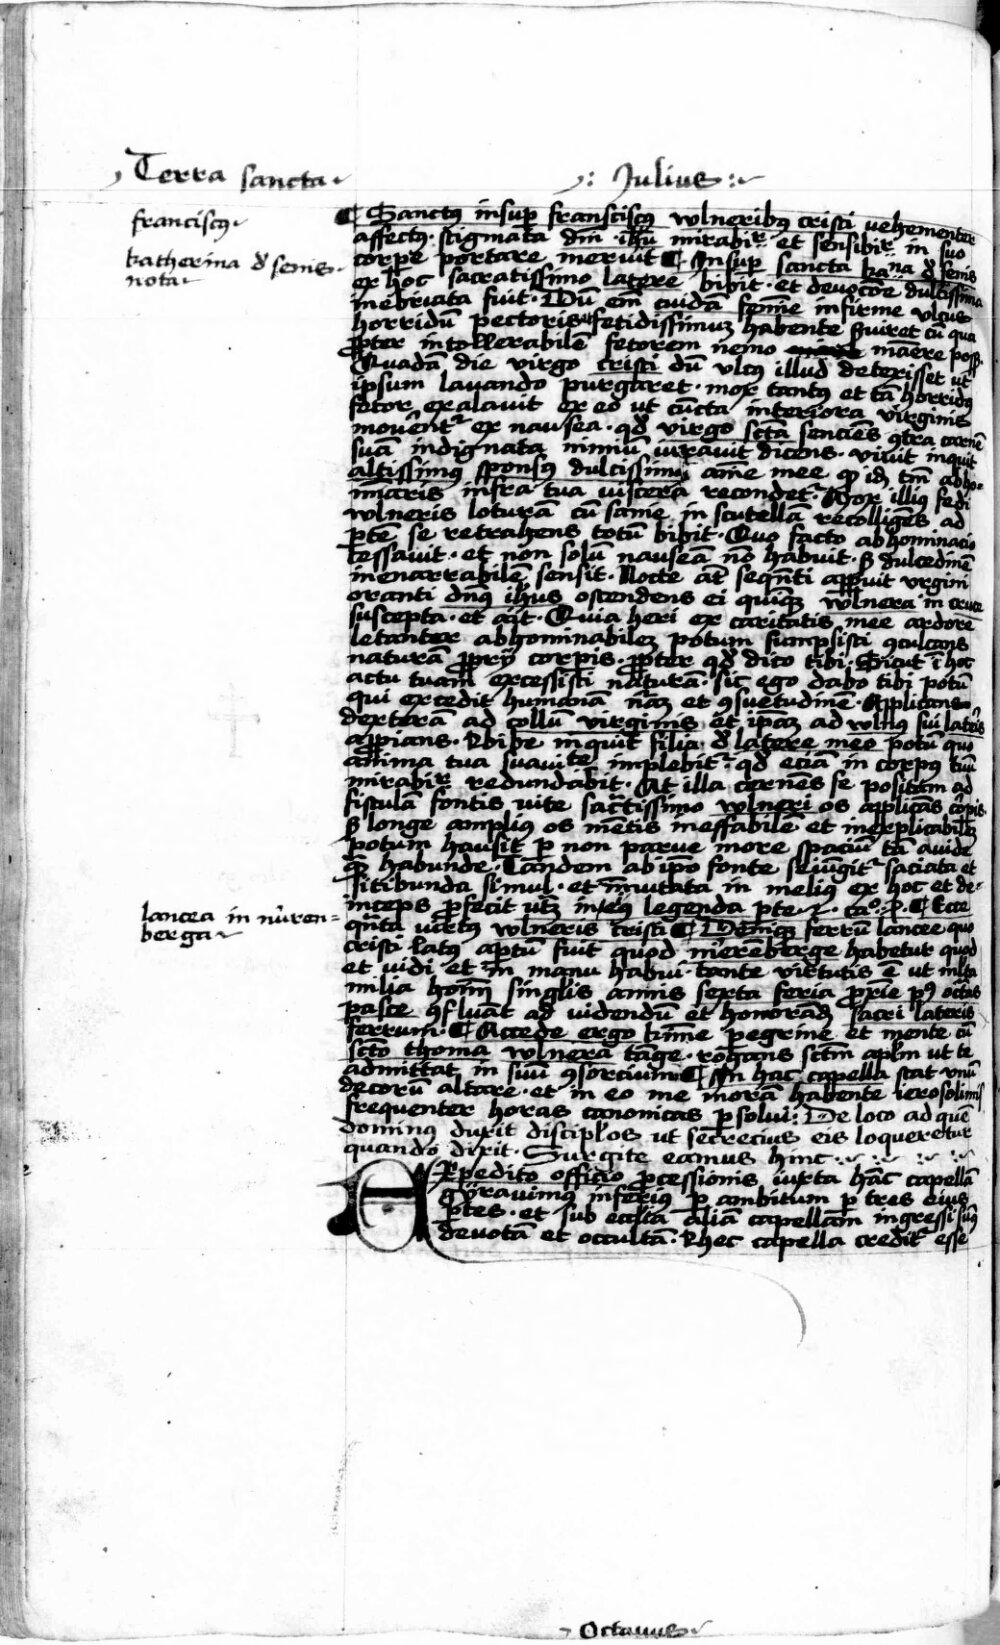 Terra sancta
.: Julius :.
franciscus
katherina d senis
nota
¶ Sanctus insup fransciscus vulneribus cristi vehementer
affectus. stigmata dni ihu mirabir. et sensibir in suo
corpe portare meruit ¶ Insup sancta kana d senis
ex hoc sacratissimo latere bibit. et devocone dulcissima
inebriata fuit. Dum eni cuidam femine infirme ulcus
horridum pectoris et fetidissimum habente serviret cum qua
propter intollerabile fetorem nemo manere posset.
Quadam die virgo cristi dum ulcus illud detexisset ut
ipsum lavando purgaret. mox tantus et tam horridus
fetor exalavit ex eo ut cuncta interiora virginis
moventur ex nausea. qd virgo scta senciens contra carnem
suam indignata nimium iuravit dicens. vivit inquit
altissimus sponsus dulcissimus anime mee qd id tm abho-
minaris infra tua viscera recondetur. Mox illius fedi
vulneris loturam cum sanie in scutellam recolligens ad
partem se retrahens totum bibit. Quo facto abhominacio
cessavit. et non solum nauseam non habuit. sed dulcedinem
inenarrabilem sensit. Nocte aut sequenti apparuit virgini
oranti dns ihus ostendens ei quinque vulnera in cruce
suscepta. et ait. Quia heri ex caritatis mee ardore
letanter abhominabilem potum sumpsisti conculcans
naturam proprij corporis. propter qd dico tibi. Sicut in hoc
actu tuam excessisti naturam. sic ego dabo tibi potum
qui excedit humanam nam et consuetudinem. Applicans
dexteram ad collum virginis et ipam ad vulnus sui lateris
appians. Bibe inquit filia d latere meo potum quo
anima tua suavitate implebitur. qd eciam in corpus tuum
mirabir redundabit. At illa cernens se positam ad
fistulam fontis vite sanctissimo vulneri os applicans corpis.
sed longe amplius os mentis ineffabilem et inexplicabilem
potum hausit p non parve more spacium tam avide
quam habunde. Tandem ab ipo fonte sejungitur saciata et
sitibunda simul. et immutata in melius ex hoc et de-
inceps profecit utz in eius legenda pte 2. cao. ¶ Ecce
lancea in nuren=
berga
quanta virtus vulneris cristi ¶ Denique ferrum lancee quo
cristi latus apertum fuit quod nierenberge habetur quod
et vidi et in manu habui. tante virtutis est ut multa
milia hominum singulis annis sexta feria proxime post octavas
pasce confluant ad videndum et honorandum sacri lateris
ferrum. ¶ Accede ergo bime peregrine et mente cum
scto thoma vulnera tange. rogans sctm aplm ut te
admittat in suum consorcium ¶ In hac capella stat unum
decorum altare. et in eo me moram habente ierosolimis
frequenter horas canonicas persolui: De loco ad quem
dominus duxit discipulos ut secrecius eis loqueretur
quando dixit. Surgite eamus hinc
Expedito officio processionis iuxta hanc capellam
gyravimus inferius p ambitum p tres eius
ptes. et sub ecclia aliam capellam ingressi sumus
devotam et occultam. Hec capella creditur esse
Octavus